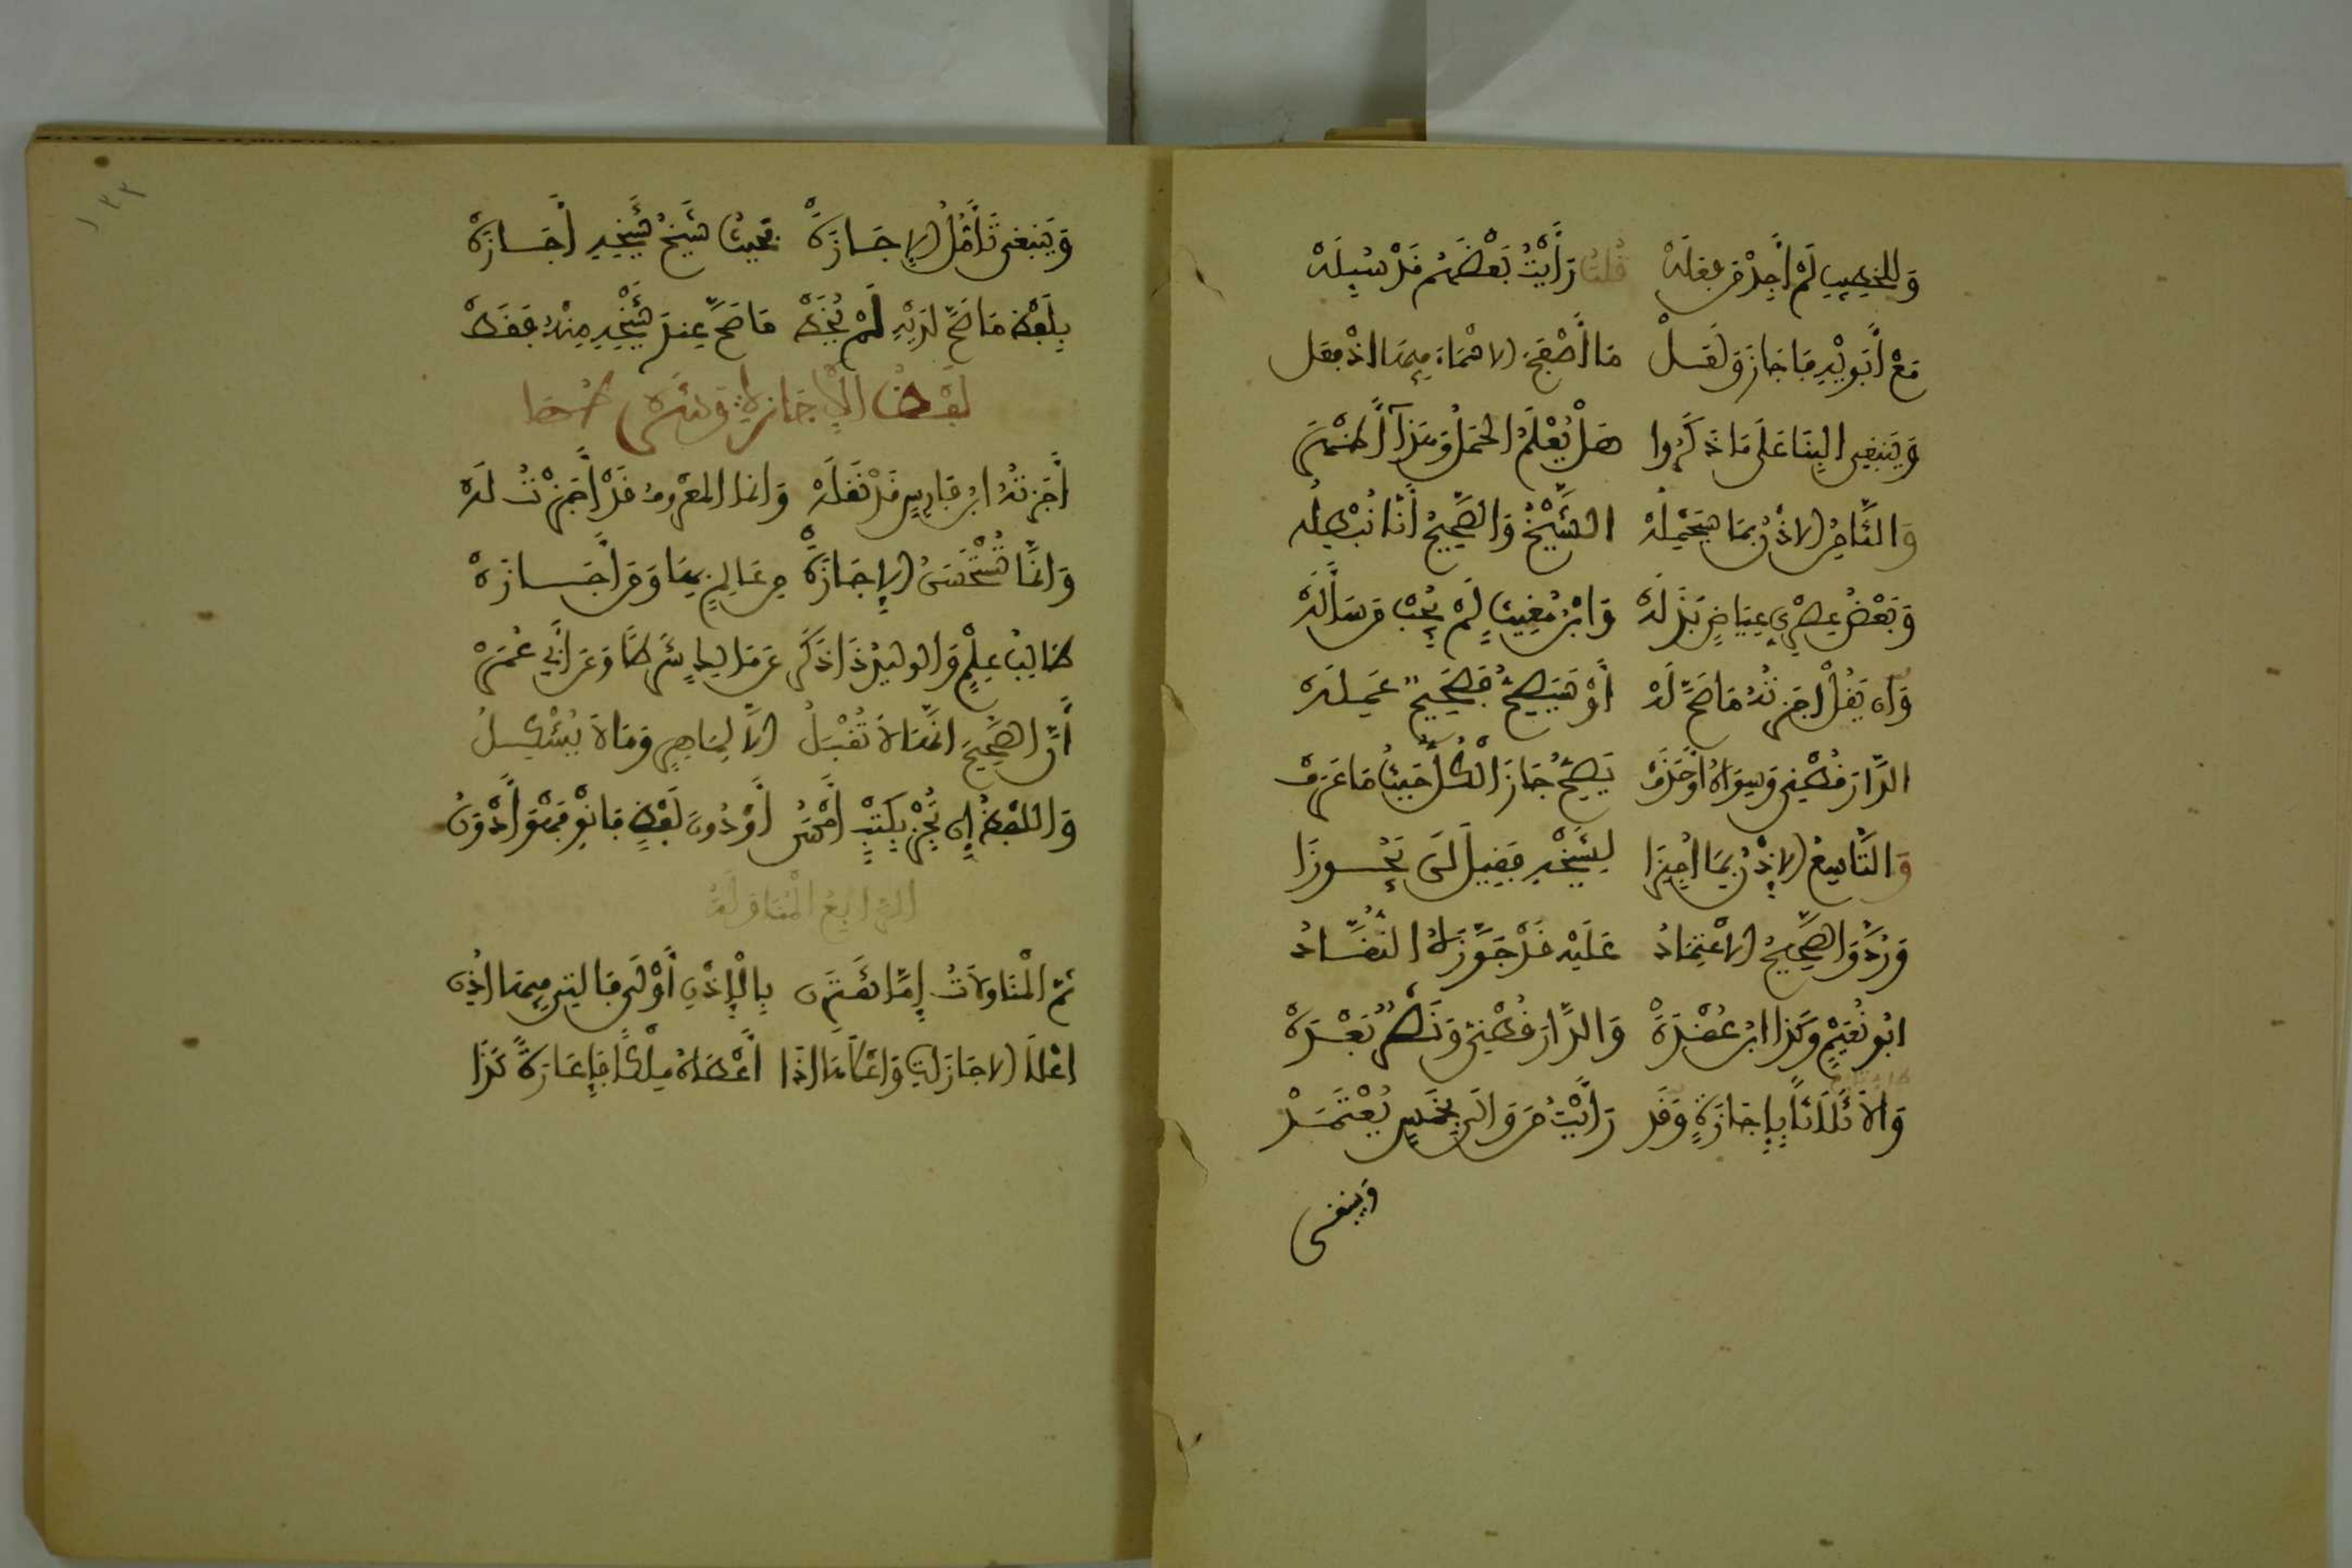 وَلِلْخَطِيبِ لَمْ أَجِدْ مَن فَعَلَهْ قُلْتُ رَأَيْتُ بَعْضَهُمْ قَدْ سُئِلَهْ
مَعْ أَبَوَيْهِ فَأَجَازَ وَلَعَلْ مَا أَصْفَحَ الاسْمَاءَ فِيهَا اذ فعل
وَيَنبَغِي الْبِنَا عَلَى مَا ذَكَرُوا هَلْ يُعْلَمُ الْحَمْلُ وَهَذَا أَظْهَرُ
وَالثَّامِنُ الاذْنُ بمَا سَيَحْمِلُهْ الشَّيْخُ وَالصَّحِيحُ أَنَّا نُبْطِلُه
وَبَعْضُ عَصْرِيِّ عِيَاضٍ بَذَلَهْ وَابْنُ مُغِيثٍ لَمْ يُجِبْ مَن سَأَلَهْ
وَان يَقُلْ أَجَزْتُهُ مَا صَحَّ لَهْ أَوْ سَيَصِحُّ فَصَحِيحٌ عَمِلَهْ
الدَّارَقُطْنِي وَسِوَاهُ أَوْ حَذَفْ يَصِحُّ جَازَ الْكُلُّ حَيْثُ مَا عَرَفْ
وَالتَّاسِعُ الاذْنُ بِمَا أُجِيزَا لِشَيْخِهِ فَقِيلَ لَن يَجُوزَا
وَرُدَّ وَالصَّحِيحُ الاعْتِمَادُ عَلَيْهِ قَدْ جَوَّزَهُ النُّقَّادُ
ابُو نُعَيْمٍ وَكَذَا ابنُ عُقْدَةْ وَالدَّارَقُطْنِيُّ وَنَصْرٌ بَعْدَهْ
وَالَا ثَلَاثًا بِإِجَازَةٍ وَقَد رَأَيْتُ مَن وَالَى بِخَمْسٍ يُعْتَمَدْ
وَينبغى
١٣٣
وَيَنبَغِى تَأَمُّلُ الإِجَازَةْ فحيثُ شَيْخُ شَيْخِهِ أَجَازَهْ
بِلَفْظِ مَا صَحَّ لَدَيْهِ لَمْ يُخَطْ مَا صَحَّ عِندَ شَيْخِهِ مِنْهُ فَقَطْ
لَفْظُ الإِجَازَةِ وَشَرْطُهَا
أَجَزْتُهُ ابنُ فَارِسٍ قَدْ نَقَلَهْ وَانما الْمَعْرُوفُ قَدْ أَجَزْتُ لَهْ
وَانَّمَا تُسْتَحْسَنُ الإِجَازَةْ مِن عَالِمٍ بِهَا وَمَن أَجَازَهْ
طَالِبُ عِلْمٍ وَالوليدُ ذَا ذَكَر عَن مَالِكٍ شَرْطًا وَعَن أَبِي عُمَرْ
أَنَّ الصَّحِيحَ انَّهَا لَا تُقْبَلُ الَّا لِمَاهِرٍ وَمَا لَا يُشْكِلُ
وَاللَّفْظُ إِن تُجِزْ بِكَتْبٍ أَحْسَنُ أَوْ دُونَ لَفْظٍ فَانْوِ فَهْوَ أَدْوَنُ
الرَّابِعُ الْمُنَاوَلَةُ
ثُمَّ الْمُنَاوَلَاتُ إِمَّا تَقْتَرِن بِالْإِذْنِ أَوْ لَا فَالتِي فِيهَا اذِن
اعْلَا الاجَازَاتِ وَاعْلَاهَا اذَا أَعْطَاهُ مِلْكًا فَإِعَارَةً كَذَا